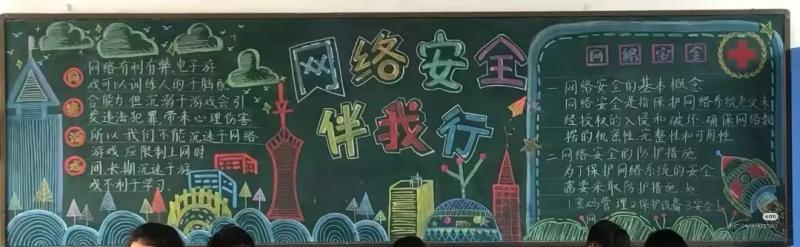 网络安全
伴我行
网络有利有弊,电子游
戏可以训练人的手脑配
合能力但沉溺于游戏会引
发违法犯罪,带来心理伤害
所以我们不能沉迷于网络
游戏应限制上网时
间长期沉迷于游
戏不利于学习
网络安全
一 网络安全的基本概念
网络安全是指保护网络系统免受未
经授权的入侵和破坏,确保网络数
据的机密性,完整性和可用性
二 网络安全的防护措施
为了保护网络系统的安全
需要采取防护措施,如
1密码管理2保护设备3安全上
网